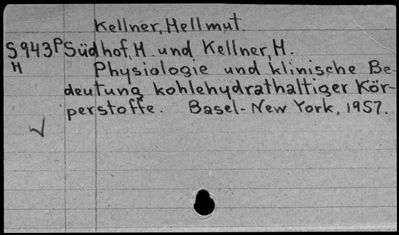 Kellner, Hellmut.
S943P Südhof, H. und Kellner, H.
H Physiologie und klinische Be-
deutung kohlehydrathaltiger Kör-
perstoffe. Basel-New York, 1957.